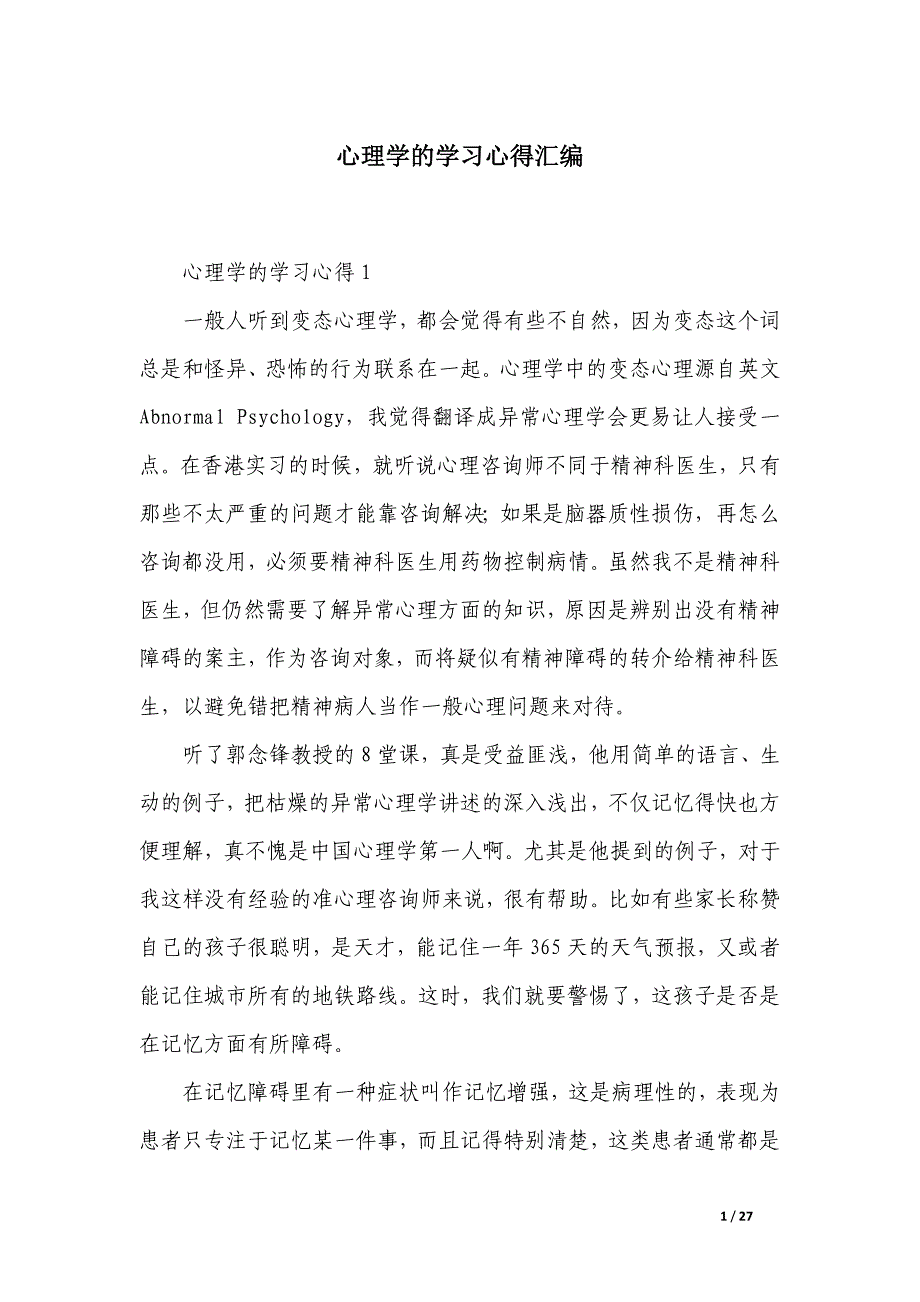 心理学的学习心得汇编
心理学的学习心得 1
一般人听到变态心理学，都会觉得有些不自然，因为变态这个词
总是和怪异、恐怖的行为联系在一起。心理学中的变态心理源自英文
Abnormal Psychology，我觉得翻译成异常心理学会更易让人接受一
点。在香港实习的时候，就听说心理咨询师不同于精神科医生，只有
那些不太严重的问题才能靠咨询解决；如果是脑器质性损伤，再怎么
咨询都没用，必须要精神科医生用药物控制病情。虽然我不是精神科
医生，但仍然需要了解异常心理方面的知识，原因是辨别出没有精神
障碍的案主，作为咨询对象，而将疑似有精神障碍的转介给精神科医
生，以避免错把精神病人当作一般心理问题来对待。
听了郭念锋教授的 8 堂课，真是受益匪浅，他用简单的语言、生
动的例子，把枯燥的异常心理学讲述的深入浅出，不仅记忆得快也方
便理解，真不愧是中国心理学第一人啊。尤其是他提到的例子，对于
我这样没有经验的准心理咨询师来说，很有帮助。比如有些家长称赞
自己的孩子很聪明，是天才，能记住一年 365 天的天气预报，又或者
能记住城市所有的地铁路线。这时，我们就要警惕了，这孩子是否是
在记忆方面有所障碍。
在记忆障碍里有一种症状叫作记忆增强，这是病理性的，表现为
患者只专注于记忆某一件事，而且记得特别清楚，这类患者通常都是
1 / 27